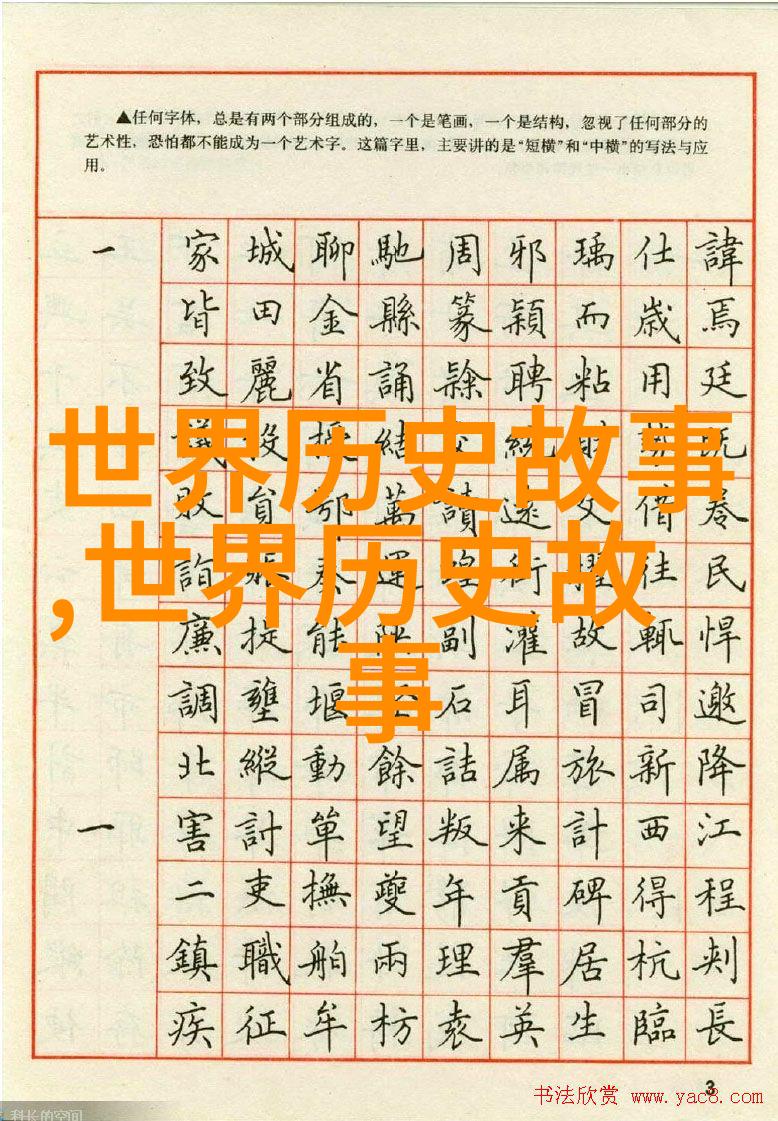 ▲任何字体，总是有两个部分组成的，一个是笔画，一个是结构，忽视了任何部分的
艺术性，恐怕都不能成为一个艺术字。这篇字里，主要讲的是“短横”和“中横”的写法与应
用。
一 家城聊馳周邪瑀仕諱
皆田金縣篆穎而歳焉
致麗省誦隸聘粘用廷
世界历史故事
結統既
敗萬讀遠文借
,世界历史故
詣奏運術擢往民
廉捉能副灌故輒悍
事
調壅堰石耳冒司邀
北縱動餘詰属旅新降
一 害討單望叛来計西江
二吏撫夔年貢碑得程
鎮職舶兩理羣居杭刺
疾征牟枋袁英生臨長
3
书法欣赏 www.yac8.com
科长的空间